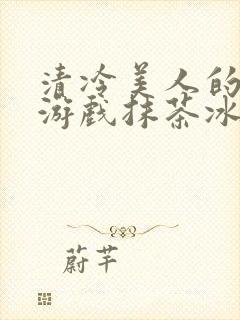 清冷美人的
游戏抹茶冰
蔚芊